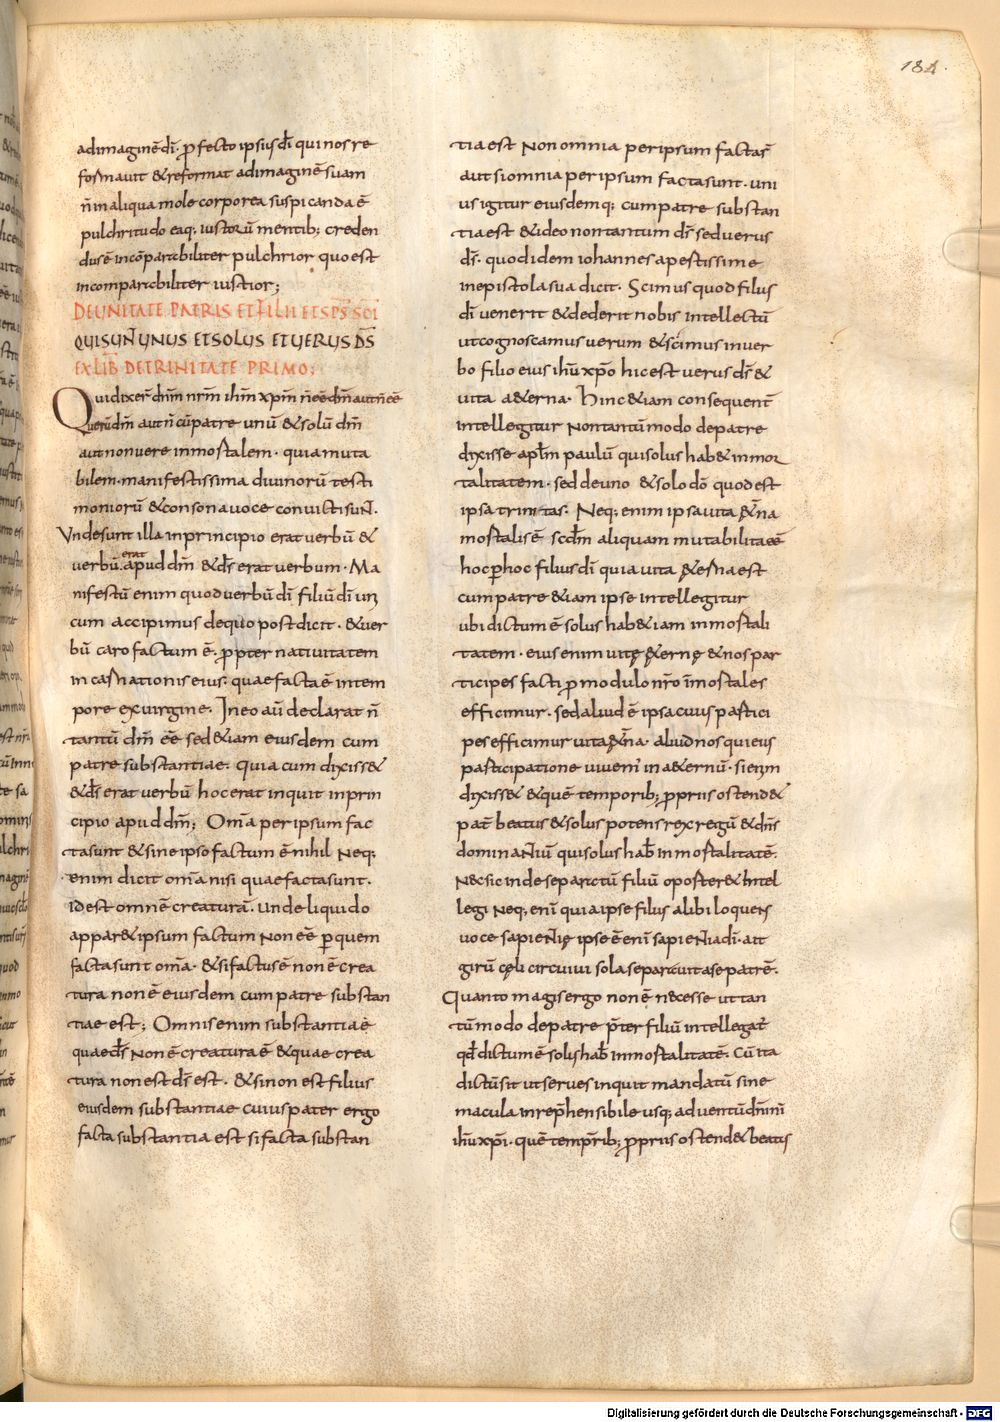 184.
adimaginē dī. ꝓfecto ipsius dī qui nos re
formavit &reformat adimaginē suam
n̄ in aliqua mole corporea suspicanda ē
pulchritudo eaq; iustorū mentib; creden
dus ē incōparabiliter pulchrior quo est
incomparabiliter iustior;
DE UNITATE PATRIS ET FILII ET SPS SCI
QUI SUNT UNUS ET SOLUS ET UERUS DS
EX LIB DE TRINITATE PRIMO;
Qui dixer̄ dn̄m nr̄m ihm̄ xp̄m n̄ eē dm̄ aut n̄ eē
uerū dm̄ aut n̄ cū patre unū & solū dm̄
aut non uere inmortalem. quia muta
bilem. manifestissima diuinorū testi
moniorū & consona uoce conuicti suN̄.
Vnde sunt illa in principio erat uerbū &
uerbū erat apud dm̄ & ds̄ erat uerbum. Ma
nifestū enim quod uerbū dī filiū dī uni
cum accipimus de quo post dicit. & uer
bū caro factum ē. ꝓpter natiuitatem
incarnationis eius. quae facta ē in tem
pore ex uirgine. In eo aū declarat n̄
tantū dm̄ eē sed &iam eiusdem cum
patre substantiae. quia cum dixiss&
& ds̄ erat uerbū hoc erat inquit in prin
cipio apud dm̄; Om̄a per ipsum fac
ta sunt & sine ipso factum ē nihil Neq;
enim dicit om̄a nisi quae facta sunt.
id est omnē creaturā. unde liquido
appar& ipsum factum non eē ꝑ quem
facta sunt om̄a. & si factus ē non ē crea
tura non ē eiusdem cum patre substan
tiae est; Omnis enim substantia ē
quae ds̄ Non ē creatura ē & quae crea
tura non est ds̄ est. & si non est filius
eiusdem substantiae cuius pater ergo
facta substantia est si facta substan
tia est Non omnia per ipsum factas̄
aut si omnia per ipsum facta sunt. uni
us igitur eiusdemq; cum patre substan
tia est & ideo non tantum ds̄ sed uerus
ds̄. quod idem iohannes apestissime
in epistola sua dicit. Scimus quod filus
dī uenerit & dederit nobis intellectū
ut cognoscamus uerum & scimus in uer
bo filio eius ihū xpō hic est uerus ds̄ &
uita a&erna. Hinc &iam consequent̄
intellegitur Non tantū modo de patre
dixisse aplm̄ paulū qui solus hab& inmor
talitatem. sed de uno & solo dō quod est
ipsa trinitas. Neq; enim ipsa uita &̄na
mostalis ē scdm̄ aliquam mutabilitatē
hoc ꝑ hoc filius dī quia uita &erna est
cum patre &iam ipse intellegitur
ubi dictum ē solus hab& iam inmostali
tatem. eius enim uitę &ernę & nos par
ticipes facti ꝓ modulo nr̄o īmostales
efficimur. sed aliud ē ipsa cuius pastici
pes efficimur uita &̄na. aliud nos qui eius
pasticipatione uiuem̄ in a&ernū. si enim
dixiss& & quē temporib; ꝓpriis ostend&
pat̄ beatus & solus potens rex regū & dn̄s
dominaNtiū qui solus hab̄ inmostalitatē.
Nec sic inde separatū filiū oporter& intel
legi Neq; enī quia ipse filius alibi loquens
uoce sapieNtię ipse ē enī sapieNtia dī. ait
girū cęli circuiui sola separauit a se patrē.
Quanto magis ergo non ē necesse ut tan
tū modo de patre p̄ter filiū intellegat̄
qd̄ dictum ē solus hab̄ inmostalitatē. Cū ita
dictū sit ut serues inquit mandatū sine
macula inrep̄hensibile usq; ad uentū dn̄i nr̄i
ihū xpī. quē temp̄rib; ꝓpriis ostend& beatus
Digitalisierung gefördert durch die Deutsche Forschungsgemeinschaft - DFG